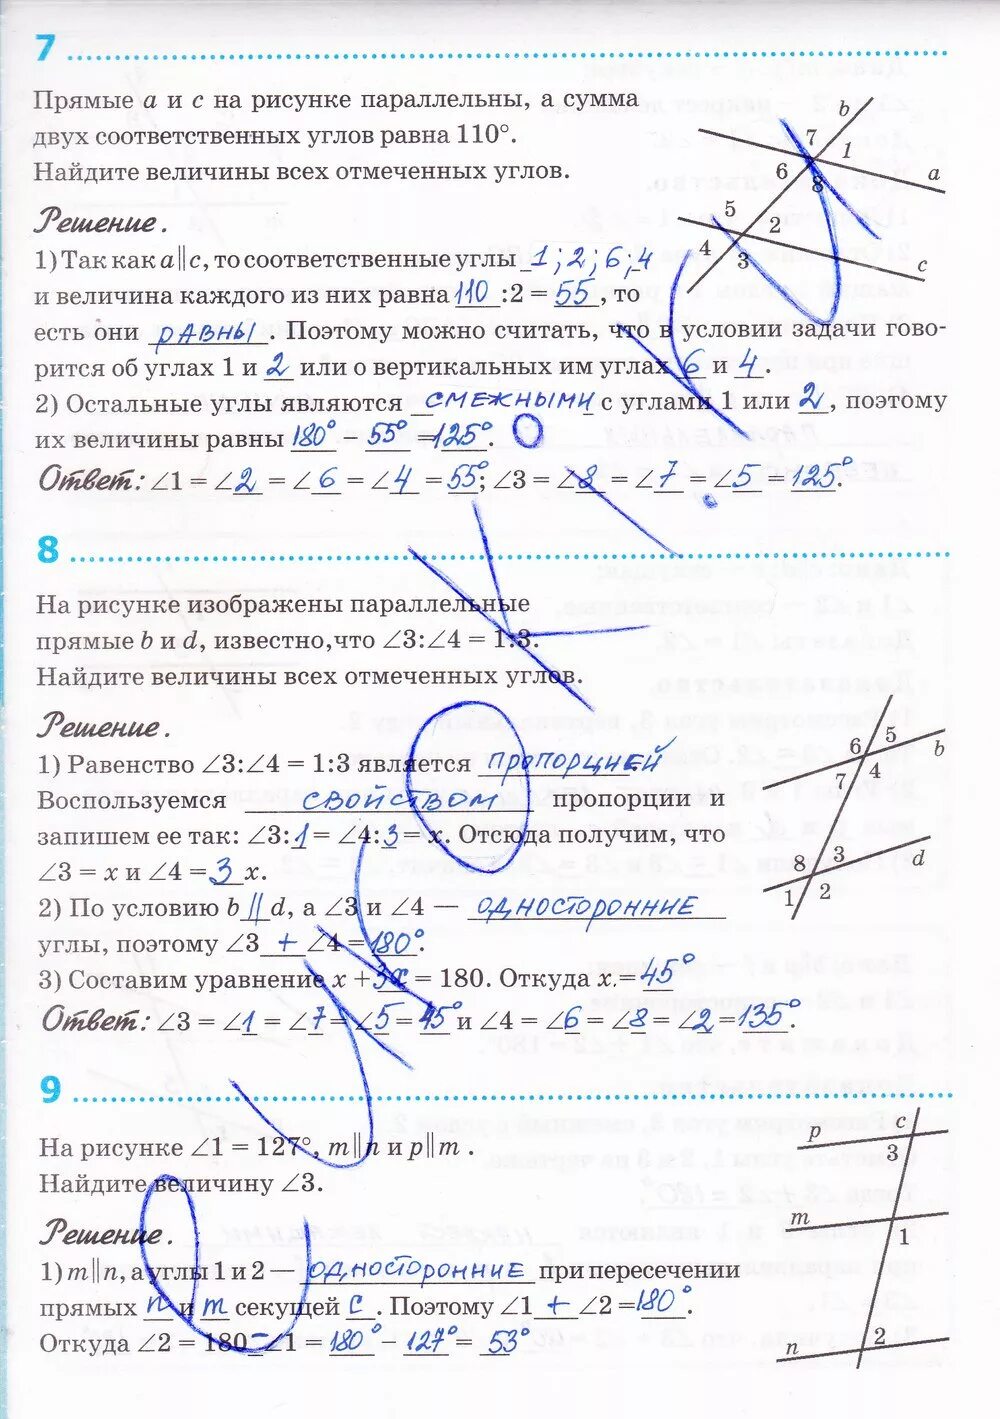 7
Прямые a и c на рисунке параллельны, а сумма
двух соответственных углов равна 110°.
Найдите величины всех отмеченных углов.
b
7
1
6
8
a
5
2
4
3
c
Решение.
1) Так как a∥c, то соответственные углы 1; 2; 6; 4
и величина каждого из них равна 110 :2 = 55, то
есть они равны. Поэтому можно считать, что в условии задачи гово-
рится об углах 1 и 2 или о вертикальных им углах 6 и 4.
2) Остальные углы являются смежными с углами 1 или 2, поэтому
их величины равны 180° – 55° = 125°.
Ответ: ∠1 = ∠2 = ∠6 = ∠4 = 55°; ∠3 = ∠8 = ∠7 = ∠5 = 125°.
8
На рисунке изображены параллельные
прямые b и d, известно,что ∠3:∠4 = 1:3.
Найдите величины всех отмеченных углов.
6
5
b
7
4
8
3
d
1
2
Решение.
1) Равенство ∠3:∠4 = 1:3 является пропорцией.
Воспользуемся свойством пропорции и
запишем ее так: ∠3:1 = ∠4:3 = x. Отсюда получим, что
∠3 = x и ∠4 = 3x.
2) По условию b ∥ d, а ∠3 и ∠4 — односторонние
углы, поэтому ∠3 + ∠4 = 180°.
3) Составим уравнение x + 3x = 180. Откуда x = 45°
Ответ: ∠3 = ∠1 = ∠7 = ∠5 = 45° и ∠4 = ∠6 = ∠8 = ∠2 = 135°.
9
На рисунке ∠1 = 127°, m∥n и p∥m .
Найдите величину ∠3.
p
c
3
m
1
2
n
Решение.
1) m∥n, а углы 1 и 2 — односторонние при пересечении
прямых n и m секущей c. Поэтому ∠1 + ∠2 = 180°.
Откуда ∠2 = 180 – ∠1 = 180° – 127° = 53°